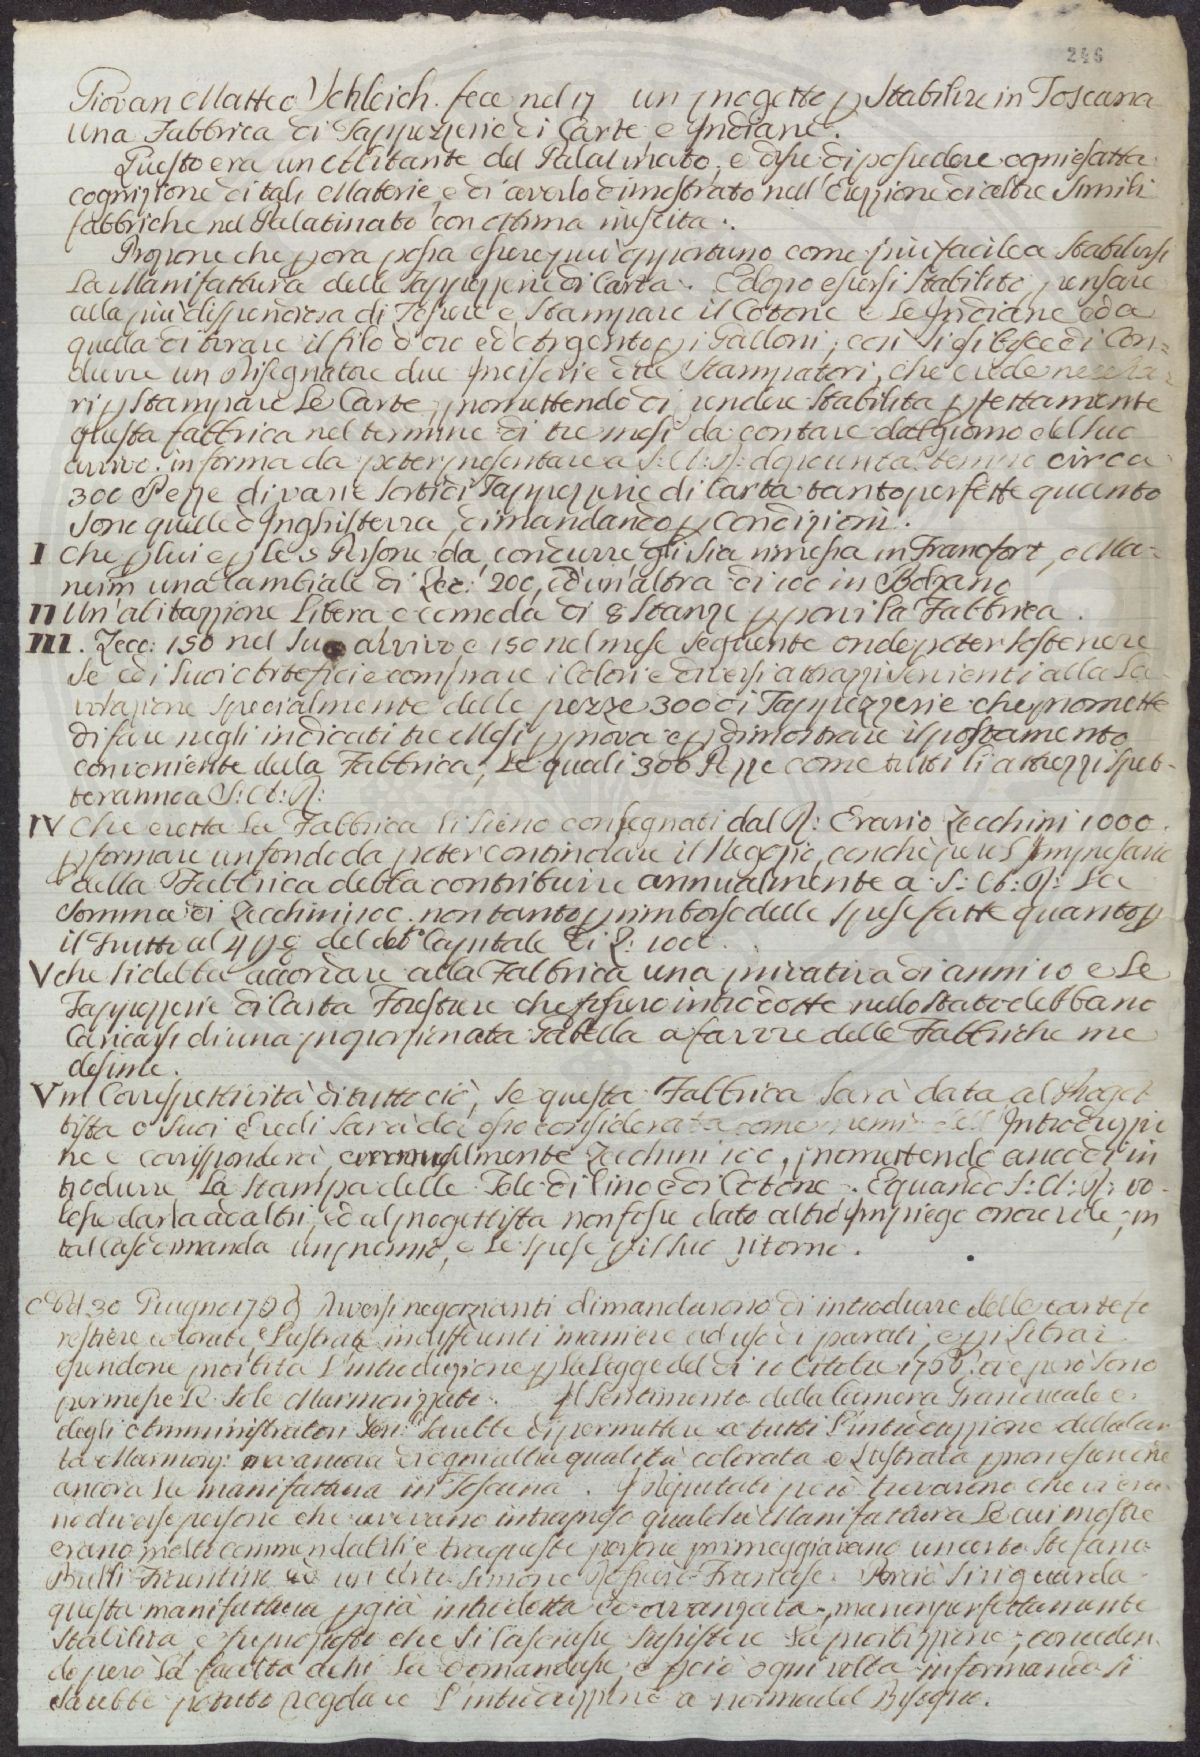 246
Giovan Matteo Schleich. fece nel 17 un progetto p Stabilire in Toscana
una Fabbrica di Tappezzerie di Carte e Indiane.
Questo era un Abitante del Palatinato, e disse di possedere ogni esatta
cognizione di tali Materie, e di averlo dimostrato nell'Erezzione di altre Simili
fabbriche nel Palatinato con ottima riuscita.
Propone che p ora possa essere più opportuno come più facile a Stabilirsi
La Manifattura delle Tappezzerie di Carta. E dopo essersi Stabilito, pensare
alla più dispendiosa di Tessere e Stampare il Cotone e Le Indiane ed a
quella di tirare il filo d'oro ed Argento p i Galloni, così si esibisce di Con=
durre un Disegnatore due Incisori e due Stampatori, che crede necessa
ri p Stampare Le Carte, promettendo di rendere Stabilita pfettamente
questa fabbrica nel termine di tre mesi da contare dal giorno del suo
arrivo. in forma da poter presentare a S: A: R: dopo un tal termine circa
300 Pezze di varie Sorti di Tappezzerie di Carta tanto perfette quanto
Sono quelle d'Inghilterra, dimandando p Condizioni.
I Che p lui e p le 5 Persone da condurre, gli sia rimessa in Francfort, o Ma=
neim una Cambiale di Zec: 200, ed un'altra di 100 in Bolzano
II Un'abitazzione Libera e comoda di 8 Stanze p porvi la Fabbrica.
III. Zecc: 150 nel Suo arrivo e 150 nel mese Seguente onde poter Sostenere
Se ed i Suoi Artefici e comprare i Colori e diversi attrazzi servienti alla La=
vorazione Specialmente delle pezze 300 di Tappezzerie che promette
di fare negli indicati tre Mesi p prova e p dimostrare il portamento
conveniente della Fabbrica, Le quali 300 Pezze come tutti li attrezzi Spet=
teranno a S: A: R:
IV Che eretta La Fabbrica li sieno consegnati dal R: Erario Zecchini 1000.
p formare un fondo da poter continovare il Negozio, con che però l'Impresario
della Fabbrica debba contribuire annualmente a S: A: R: La
Somma di Zecchini 100. non tanto p rimborso delle Spese fatte quanto p
il frutto al 4 p% del det.º Capitale di Z: 1000.
V che si debba accordare alla Fabbrica una privativa di anni 10 e Le
Tappezzerie di Carta Forestiere che fossero introdotte nello Stato debbano
Caricarsi di una proporzionata Gabella a favore delle Fabbriche me
desime.
V In Corrispettività di tutto ciò, Se questa Fabbrica Sarà data al Proget
tista o Suoi Eredi Sarà da esso considerata come premio dell'Introduzzio
ne e corrisponderà annualmente Zecchini 100, promettendo anco di in
trodurre La Stampa delle Tele di Lino e di Cotone. E quando S: A: R: vo=
lesse darla ad altri, ed al progettista non fosse dato altro Impiego onorevole, in
tal caso dimanda un premio, e Le Spese p il Suo ritorno.
A dì 30 Giugno 17 Diversi negozzianti dimandarono di introdurre delle carte fo
restiere colorate e Lustrate in differenti maniere ad uso di parati, e p i Librai
essendone proibita L'introduzione p La Legge del dì 10 Ottobre 17 ove però Sono
permesse Le Sole Marmorizzate. Il Sentimento della Camera Granducale e
degli Amministratori Gen: Sarebbe di permettere a tutti L'introduzzione della Car
ta Marmoriz: ma ancora di ogni altra qualità colorata e Lustrata p non essercene
ancora La manifattura in Toscana. I Deputati però trovarono che vi era=
no diverse persone che avevano intrapreso qualche Manifattura Le cui mostre
erano molto commendabili e tra queste persone primeggiavano un certo Stefano
Fiorentino ed un certo Simone Francese. Perciò si riguarda
questa manifattura p già introdotta ed avanzata, ma non perfettamente
Stabilita, e fu proposto che Si lasciasse Sussistere La proibizzione, conceden=
do però La facoltà a chi La domandasse, e perciò ogni volta informando Si
sarebbe potuto regolare L'introduzzione a norma del Bisogno.